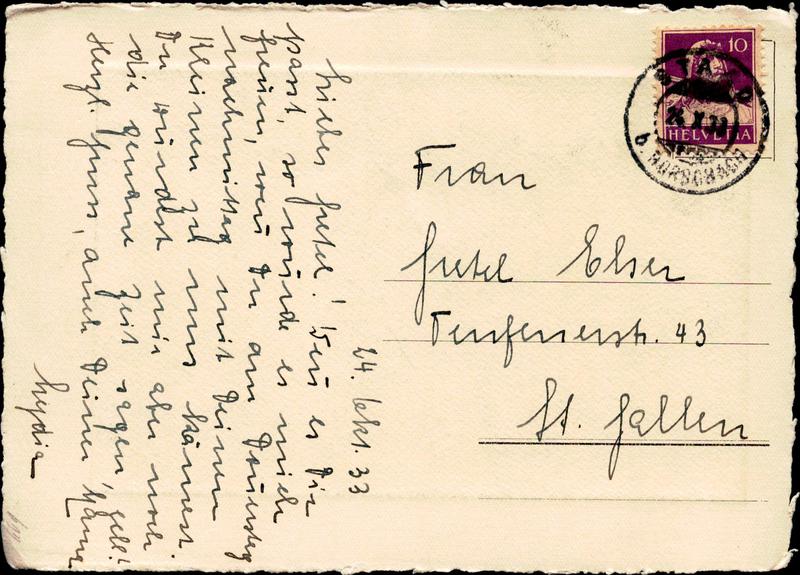 24. Okt. 33
Liebes Gretel! Wenn es Dir
passt, so würde es mich
freuen, wenn Du am Donnerstag
nachmittag mit Deinen
Kleinen zu uns kämest.
Du würdest mir aber noch
die genaue Zeit sagen, gell!
Herzl. Gruss, auch Deiner Mama
Lydia
10
HELVETIA
STAAD
24 X 33
b. RORSCHACH
Frau
Gretel Elser
Teufenerstr. 43
St. Gallen